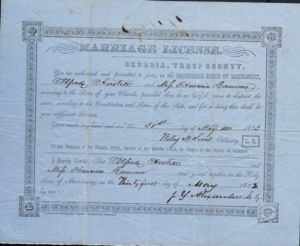 MARRIAGE LICENSE.
GEORGIA, TROUP COUNTY.
You are authorized and permitted to join, in the HONORABLE STATE OF MATRIMONY,
Alfred and Miss
according to the Rites of your Church, provided there be no lawful cause to obstruct the
same, according to the Constitution and Laws of this State, and for so doing this shall be
your sufficient License.
Given under my hand and seal this 30th day of May 1853
Ordinary. L. S.
To any Minister of the Gospel, Judge, Justice of the Inferior Court, or Justice of the Peace, to celebrate.
I Hereby Certify, That Alfred and
Miss were joined together in the Holy
Bans of Matrimony, on the Thirty first day of May 1853
J. Y. Alexander